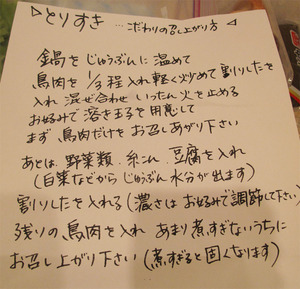 ▷とりすき …こだわりの召し上がり方 ◁
鍋をじゅうぶんに温めて
鳥肉を1/3程入れ軽く炒めて割りしたを
入れ混ぜ合わせいったん火を止める
お好みで溶き玉るを用意して
まず鳥肉だけをお召しあがり下さい
あとは、野菜類、糸こん、豆腐を入れ
(白菜などからじゅうぶん水分が出ます)
割りしたを入れる(濃さはお好みで調節して下さい)
残りの鳥肉を入れあまり煮すぎないうちに
お召し上がり下さい(煮すぎると固くなります)